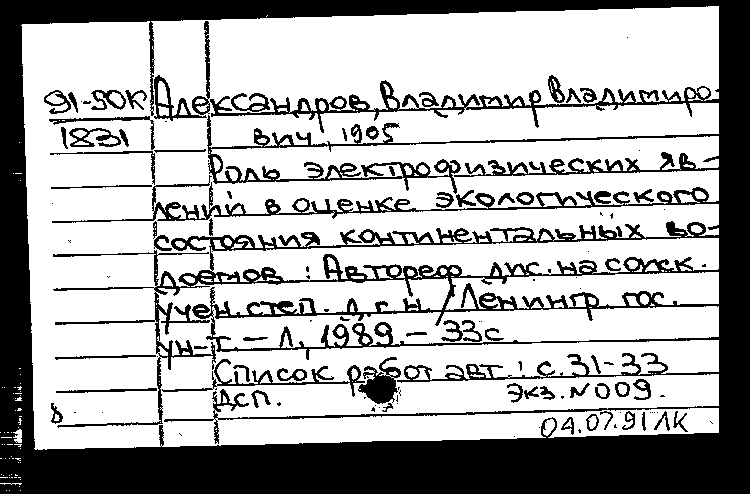 91-90к Александров, Владимир Владимиро-
1831 вич, 1905
Роль электрофизических яв-
лений в оценке экологического
состояния континентальных во-
доемов : Автореф. дис. на соиск.
учен. степ. д.г.н. / Ленингр. гос.
ун-т. - Л., 1989. - 33 с.
Список работ авт.: с. 31-33
Дсп. Экз. N 009.
04.07.91 ЛК